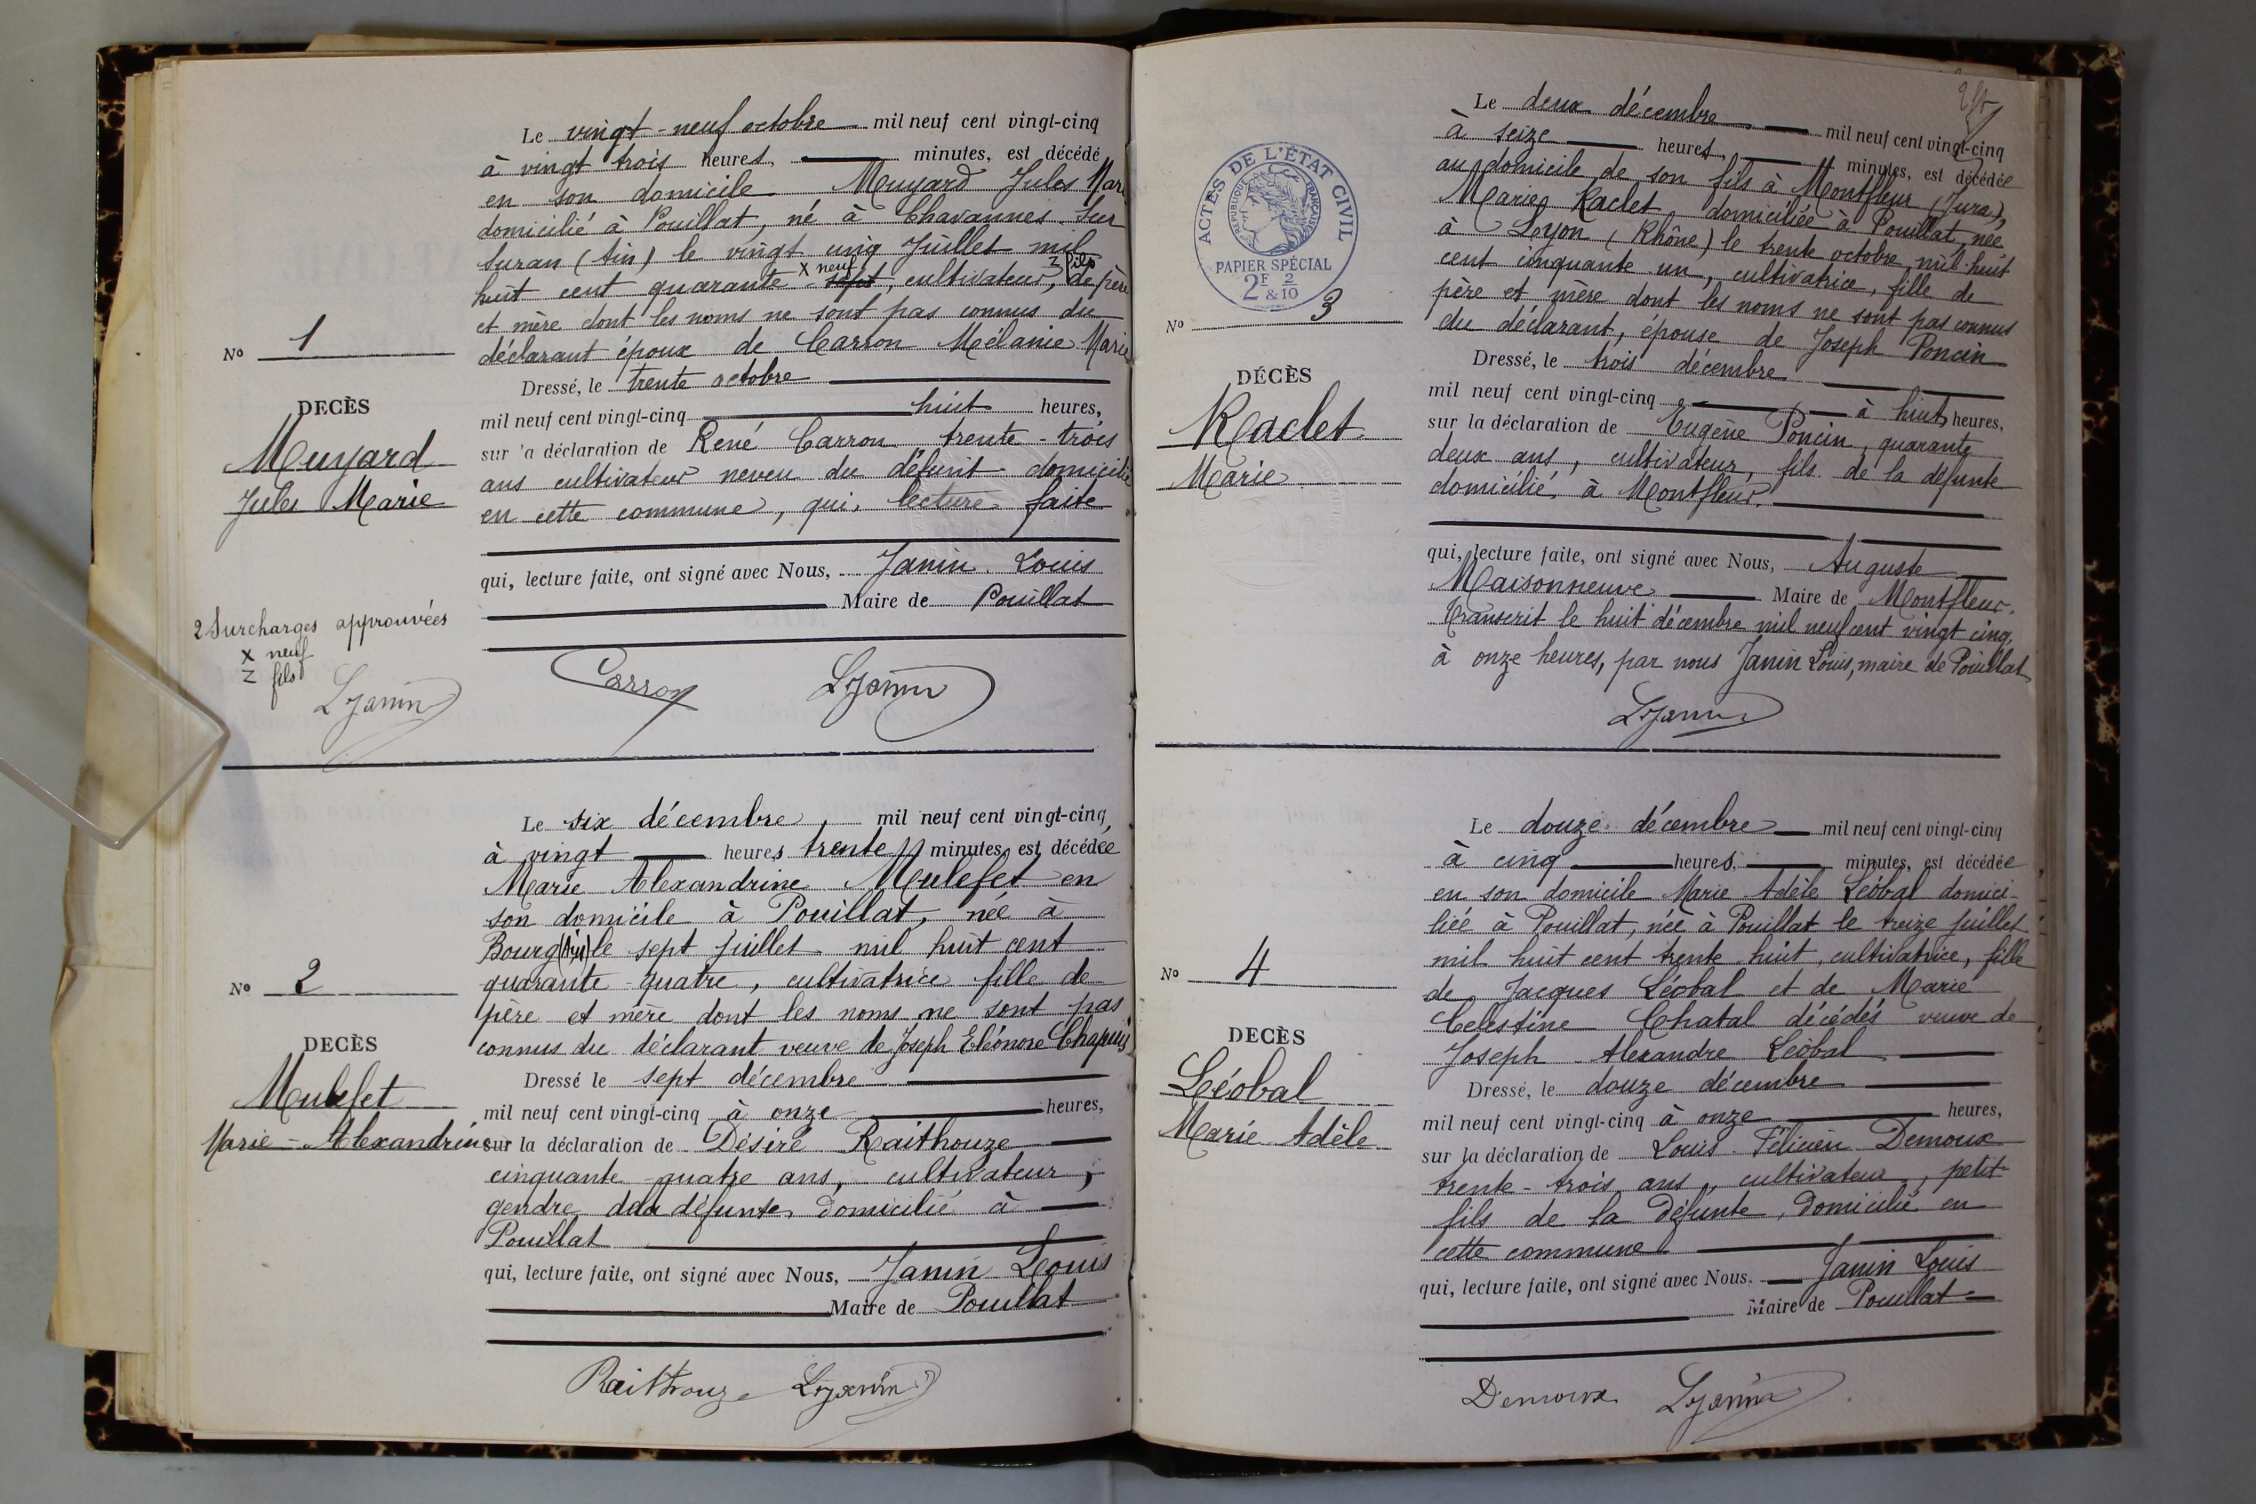 Le vingt-neuf octobre mil neuf cent vingt-cinq
à vingt trois heures, minutes, est décédé
en son domicile Muyard Jules Marie
domicilié à Pouillat, né à Chavannes sur
Suran (Ain) le vingt cinq Juillet mil
huit cent quarante - sept x neuf, cultivateur, z fils de père
et mère dont les noms ne sont pas connus du
déclarant époux de Carron Mélanie Marie
Dressé, le trente octobre
mil neuf cent vingt-cinq huit heures,
sur la déclaration de René Carron trente-trois
ans cultivateur neveu du défunt domicilié
en cette commune, qui, lecture faite
qui, lecture faite, ont signé avec Nous, Janin Louis
Maire de Pouillat
No 1
DECÈS
Muyard
Jules Marie
2 Surcharges approuvées
x neuf
z fils
L Janin
Carron L Janin
Le six décembre, mil neuf cent vingt-cinq,
à vingt heures trente minutes, est décédée
Marie Alexandrine Mulefet en
son domicile à Pouillat, née à
Bourg (Ain) le sept juillet mil huit cent
quarante-quatre, cultivatrice fille de
père et mère dont les noms ne sont pas
connus du déclarant veuve de Joseph Eléonore Chapuis
Dressé le sept décembre
mil neuf cent vingt-cinq à onze heures,
sur la déclaration de Désiré Raithouze
cinquante-quatre ans, cultivateur,
gendre de la défunte, domicilié à
Pouillat
qui, lecture faite, ont signé avec Nous, Janin Louis
Maire de Pouillat
No 2
DECÈS
Mulefet
Marie-Alexandrine
Raithouze L Janin
ACTES DE L'ÉTAT CIVIL
RÉPUBLIQUE FRANÇAISE
PAPIER SPÉCIAL
2F & 2/10
Le deux décembre mil neuf cent vingt-cinq
à seize heures, minutes, est décédée
au domicile de son fils à Montfleur (Jura),
Marie Raclet domiciliée à Pouillat, née
à Lyon (Rhône) le trente octobre mil huit
cent cinquante un, cultivatrice, fille de
père et mère dont les noms ne sont pas connus
du déclarant, épouse de Joseph Poncin
Dressé, le trois décembre
mil neuf cent vingt-cinq à huit heures,
sur la déclaration de Eugène Poncin, quarante
deux ans, cultivateur, fils de la défunte
domicilié à Montfleur.
qui, lecture faite, ont signé avec Nous, Auguste
Maisonneuve Maire de Montfleur.
Transcrit le huit décembre mil neuf cent vingt cinq,
à onze heures, par nous Janin Louis, maire de Pouillat
No 3
DÉCÈS
Raclet
Marie
L Janin
Le douze décembre mil neuf cent vingt-cinq
à cinq heures, minutes, est décédée
en son domicile Marie Adèle Léobal domici-
liée à Pouillat, née à Pouillat le treize juillet
mil huit cent trente huit, cultivatrice, fille
de Jacques Léobal et de Marie
Celestine Chatal décédés veuve de
Joseph Alexandre Léobal
Dressé, le douze décembre
mil neuf cent vingt-cinq à onze heures,
sur la déclaration de Louis Félicien Demoux
trente-trois ans, cultivateur, petit-
fils de la défunte, domicilié en
cette commune
qui, lecture faite, ont signé avec Nous. Janin Louis
Maire de Pouillat
No 4
DECÈS
Léobal
Marie Adèle
Demoux L Janin